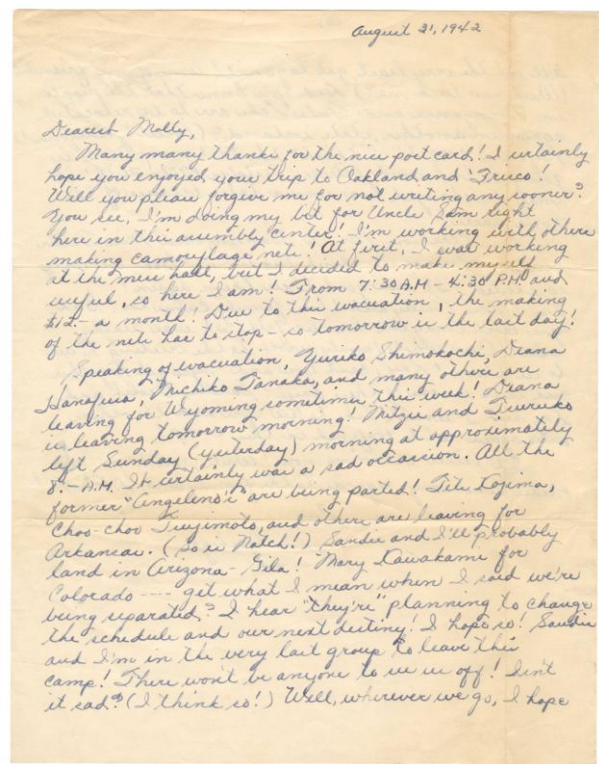 August 31, 1942
Dearest Molly,
Many many thanks for the nice post card! I certainly
hope you enjoyed your trip to Oakland and 'Frisco!
Will you please forgive me for not writing any sooner?
You see, I'm doing my bit for Uncle Sam right
here in this assembly center! I'm working with others
making camouflage nets! At first, I was working
at the mess hall, but I decided to make myself
useful, so here I am! From 7:30 A.M - 4:30 P.M. and
$12.- a month! Due to this evacuation, the making
of the nets has to stop - so tomorrow is the last day!
Speaking of evacuation, Yuriko Shimokochi, Diana
Hanafusa, Michiko Tanaka, and many others are
leaving for Wyoming sometime this week! Diana
is leaving tomorrow morning! Mitzie and Tsuruko
left Sunday (yesterday) morning at approximately
8:- A.M. It certainly was a sad occassion. All the
former "Angeleno's" are being parted! Kojima,
Choo-choo Tsujimoto, and others are leaving for
Arkansas. (So is Match!) Sandie and I'll probably
land in Arizona - Gila! Mary Kawakami for
Colorado ---- get what I mean when I said we're
being separated? I hear "they're" planning to change
the schedule and our next destiny! I hope so! Sandie
and I'm in the very last group to leave this
camp! There won't be anyone to see us off! Isn't
it sad? (I think so!) Well, wherever we go, I hope